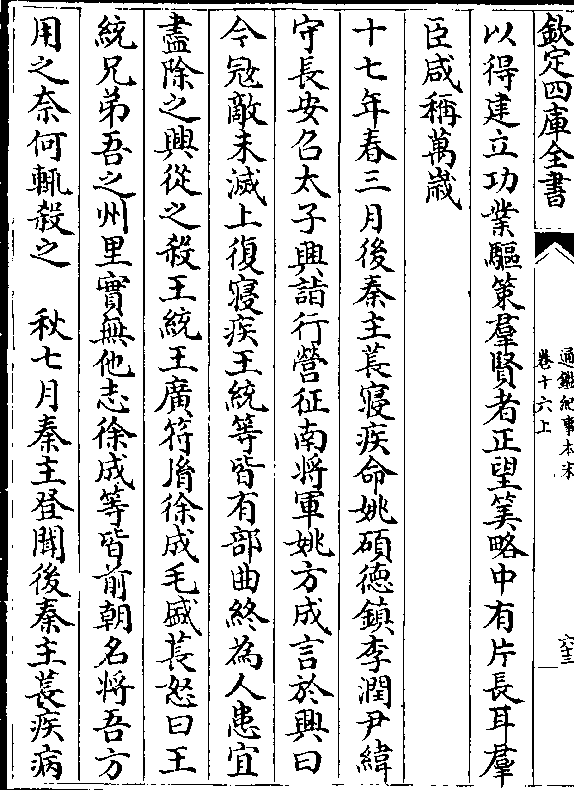 欽定四庫全書
通鑑紀事本末
卷十六上
六三
以得建立功業驅策羣賢者正望筭略中有片長耳羣
臣咸稱萬歲
十七年春三月後秦主萇寝疾命姚碩德鎮李潤尹緯
守長安召太子興詣行營征南將軍姚方成言於興曰
今冦敵未滅上復寝疾王統等皆有部曲終為人患宜
盡除之興從之殺王統王廣苻𦙍徐成毛盛萇怒曰王
統兄弟吾之州里實無他志徐成等皆前朝名將吾方
用之奈何輒殺之　秋七月秦主登聞後秦主萇疾病